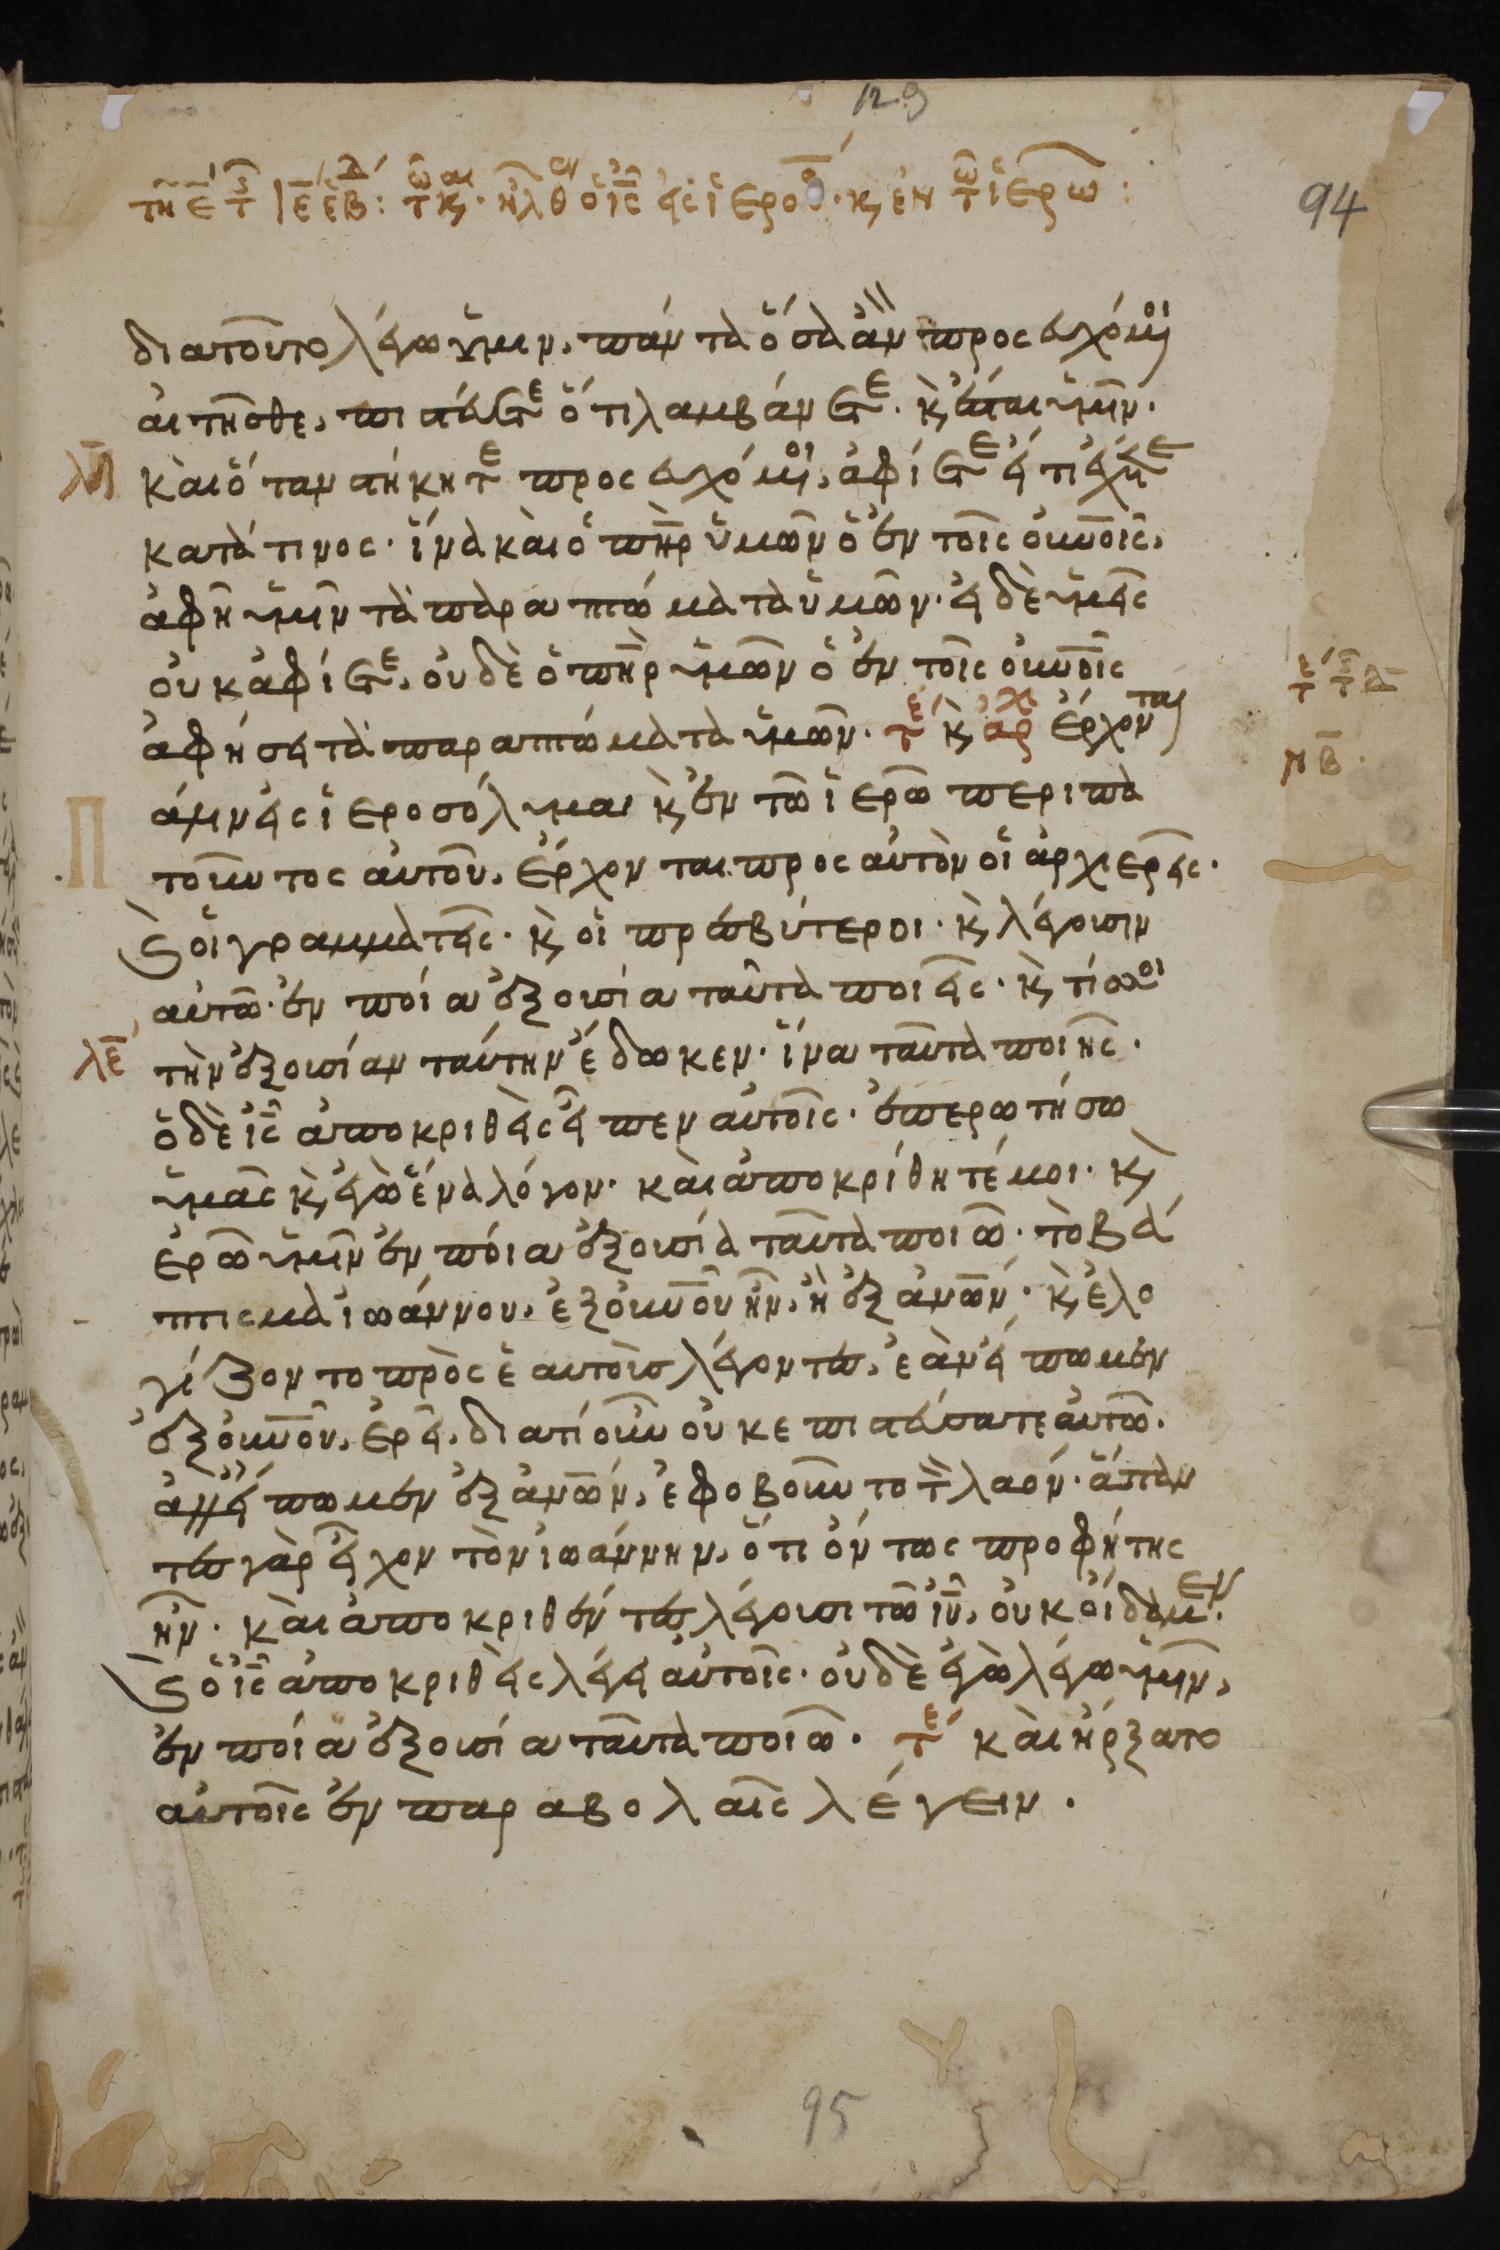 129
94
τῆ ε τ ε ἑβ: τ κ. ἦλθ ὁ ις εἰς ἱερο κ, ἐν τ ἱερω:
δια τοῦτο λέγω ὑμιν, πάντα ὅσα ἂν προσευχόμοι
αιτῆσθε, πιστεύετε ὅτι λαμβάνετε. κ, ἔσται ὑμῖν.
λη
καὶ ὅταν στήκητε προσευχόμοι, ἀφίετε εἴ τι ἔχετε
κατά τινος. ἵνα καὶ ὁ πηρ ὑμῶν ὁ ἐν τοῖς οὐνοῖς,
ἀφῆ ὑμῖν τὰ παραπτώματα ὑμῶν. εἰ δὲ ὑμεῖς
οὐκ ἀφίετε, οὐδὲ ὁ πηρ ὑμῶν ὁ ἐν τοῖς οὐνοῖς
ἀφήσει τὰ παραπτώματα ὑμῶν. τε κ, αρχ ἔρχονται
τε τ
ΜΒ.
πάλιν εἰς ἱεροσόλυμα κ, ἐν τῶ ἱερῶ περιπα
τοῦντος αὐτοῦ, ἔρχονται προς αὐτὸν οἱ ἀρχιερεῖς.
Π
κ, οἱ γραμματεῖς. κ, οἱ πρεσβύτεροι. κ, λέγουσιν
αὐτῶ. ἐν ποία ἐξουσία ταῦτα ποιεῖς. κ, τίς σοι
λε
τὴν ἐξουσίαν ταύτην ἔδωκεν. ἵνα ταῦτα ποιῆς.
ὁ δὲ ις ἀποκριθεὶς εἶπεν αὐτοῖς. ἐπερωτήσω
ὑμᾶς κ, ἐγὼ ἕνα λόγον. καὶ ἀποκρίθητέ μοι. κ,
ἐρῶ ὑμῖν ἐν ποία ἐξουσία ταῦτα ποιῶ. τὸ βά
πτισμα ἰωάννου, ἐξ οὐνοῦ ἦν, ἢ ἐξ ἀνων. κ, ἐλο
γίζοντο πρὸς ἑαυτοὺσ λέγοντες, ἐὰν εἴπωμεν
ἐξ οὐνοῦ, ἐρεῖ, διατί οὖν οὐκ επιστεύσατε αὐτῶ.
ἀλλ' εἴπωμεν ἐξ ἀνων, ἐφοβοῦντο τ λαόν. ἅπαν
τες γὰρ εἶχον τὸν ἰωάννην, ὅτι ὄντως προφήτης
ἦν. καὶ ἀποκριθέντες λέγουσι τῶ ιυ, οὐκ οἴδαμεν.
κ, ὁ ις ἀποκριθεὶς λέγει αὐτοῖς. οὐδὲ ἐγὼ λέγω ὑμῖν,
ἐν ποία ἐξουσία ταῦτα ποιῶ. τε καὶ ἤρξατο
αὐτοῖς ἐν παραβολαῖς λέγειν.
95